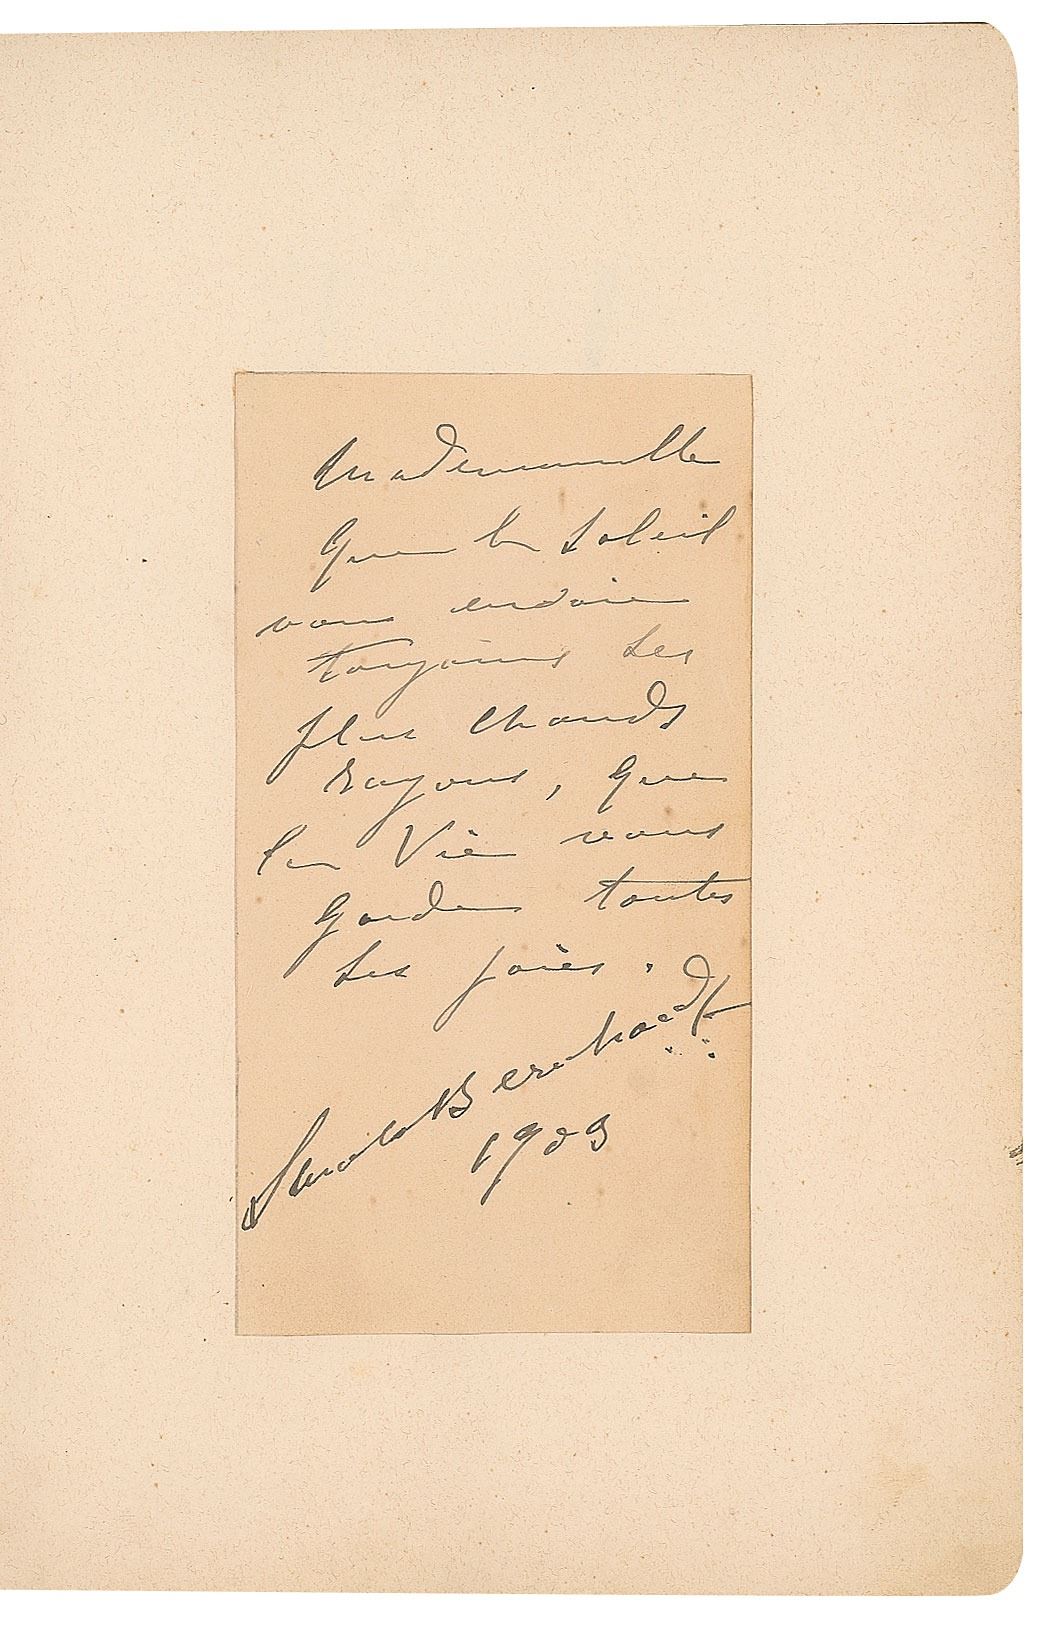 Mademoiselle
Que le Soleil
vous envoie
toujours ses
plus chauds
rayons, que
la Vie vous
garde toutes
ses joies.
Sarah Bernhardt
1903